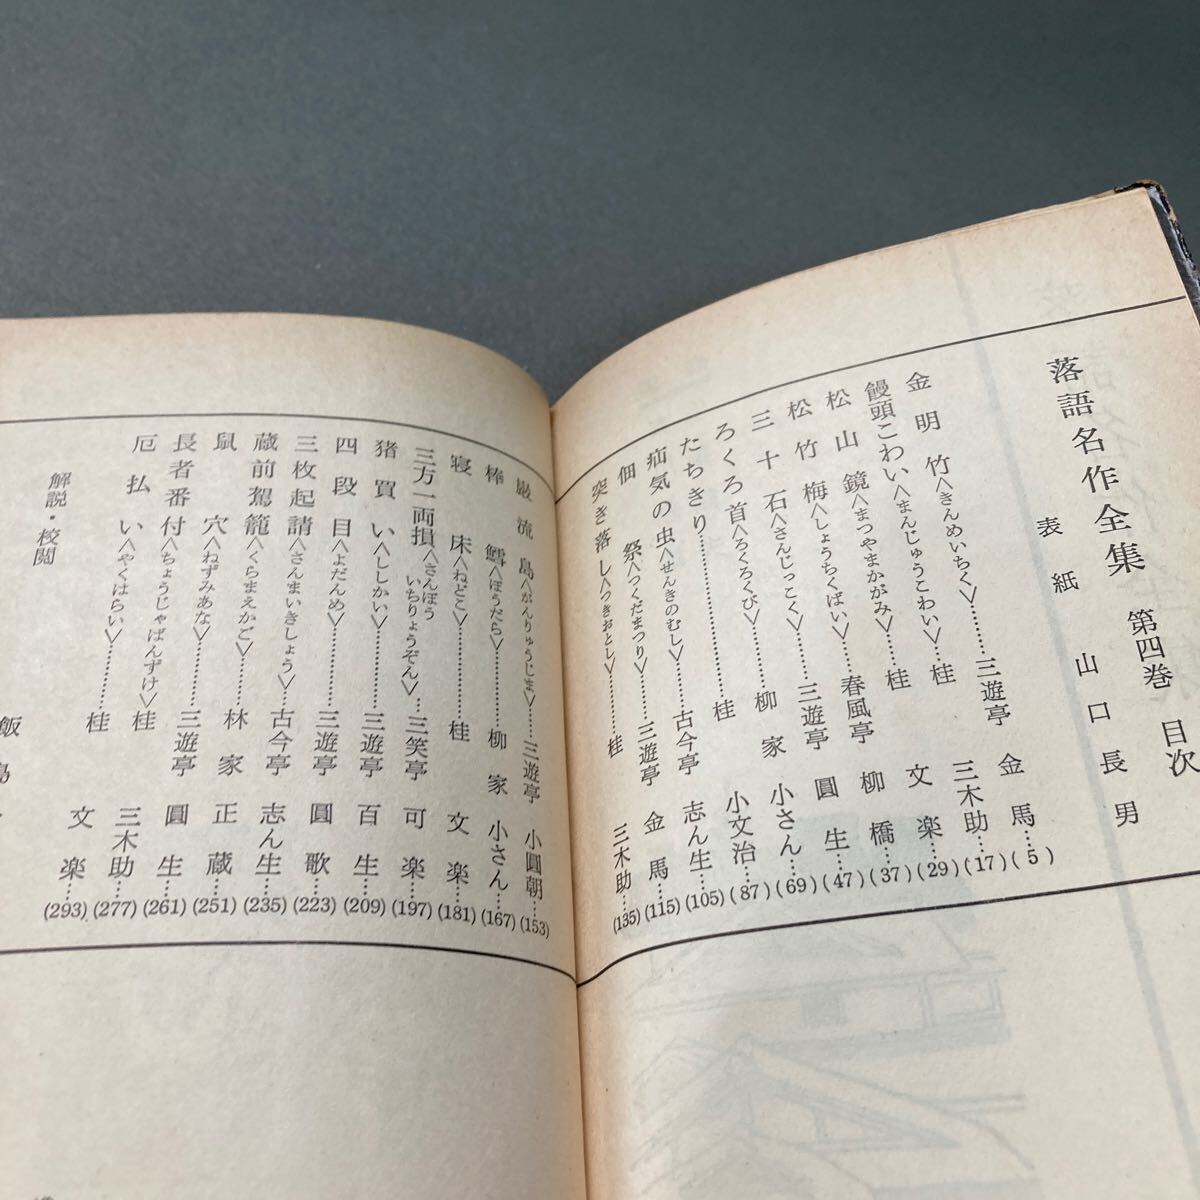 落語名作全集　第四巻　目次
表紙　山口長男
金明竹<きんめいちく>……三遊亭　金馬…(5)
饅頭こわい<まんじゅうこわい>……桂　三木助…(17)
松山鏡<まつやまかがみ>……桂　文楽…(29)
松竹梅<しょうちくばい>……春風亭　柳橋…(37)
三十石<さんじっこく>……三遊亭　圓生…(47)
ろくろ首<ろくろくび>……柳家　小さん…(69)
たちきり……桂　小文治…(87)
疝気の虫<せんきのむし>……古今亭　志ん生…(105)
佃祭<つくだまつり>……三遊亭　金馬…(115)
突き落し<つきおとし>……桂　三木助…(135)
巌流島<がんりゅうじま>……三遊亭　小圓朝…(153)
棒鱈<ぼうだら>……柳家　小さん…(167)
寝床<ねどこ>……桂　文楽…(181)
三方一両損<さんぼういちりょうぞん>…三笑亭　可楽…(197)
猪買い<ししかい>……三遊亭　百生…(209)
四段目<よだんめ>……三遊亭　圓歌…(223)
三枚起請<さんまいきしょう>…古今亭　志ん生…(235)
蔵前駕籠<くらまえかご>……林家　正蔵…(251)
鼠穴<ねずみあな>……三遊亭　圓生…(261)
長者番付<ちょうじゃばんずけ>…桂　三木助…(277)
厄払い<やくはらい>……桂　文楽…(293)
解説・校閲　飯島